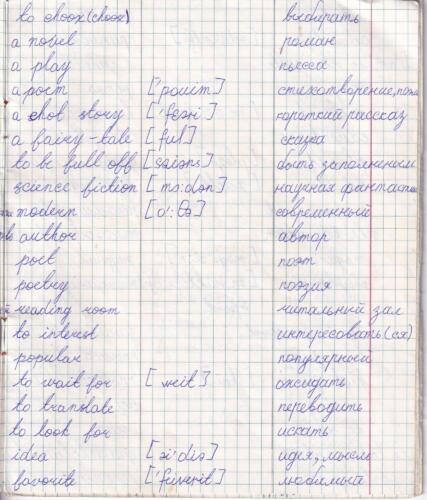 to choox (choox) выбирать
a nobel роман
a play пьесса
a poem ['pouim] стихотворение, поэма
a chot story ['feəri] короткий рассказ
a fairy-tale [ful] сказка
to be full off [saiəns] быть заполненым
science fiction [mɔ:dən] научная фантастика
modern [o':θə] современный
author автор
poet поэт
poetry поэзия
reading room читальный зал
to interest интересовать(ся)
popular популярный
to wait for [weit] ожидать
to translate переводить
to look for искать
idea [ai'diə] идея, мысль
favorite ['feiverit] любимый